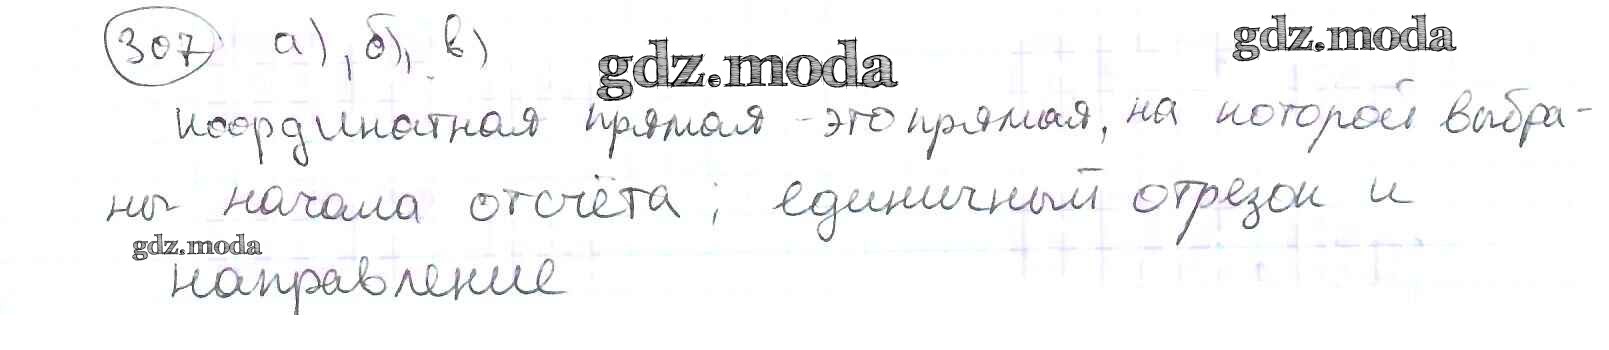 307 а), б), в)
gdz.moda
gdz.moda
координатная прямая - это прямая, на которой выбра-
ны начала отсчёта; единичный отрезок и
gdz.moda
направление